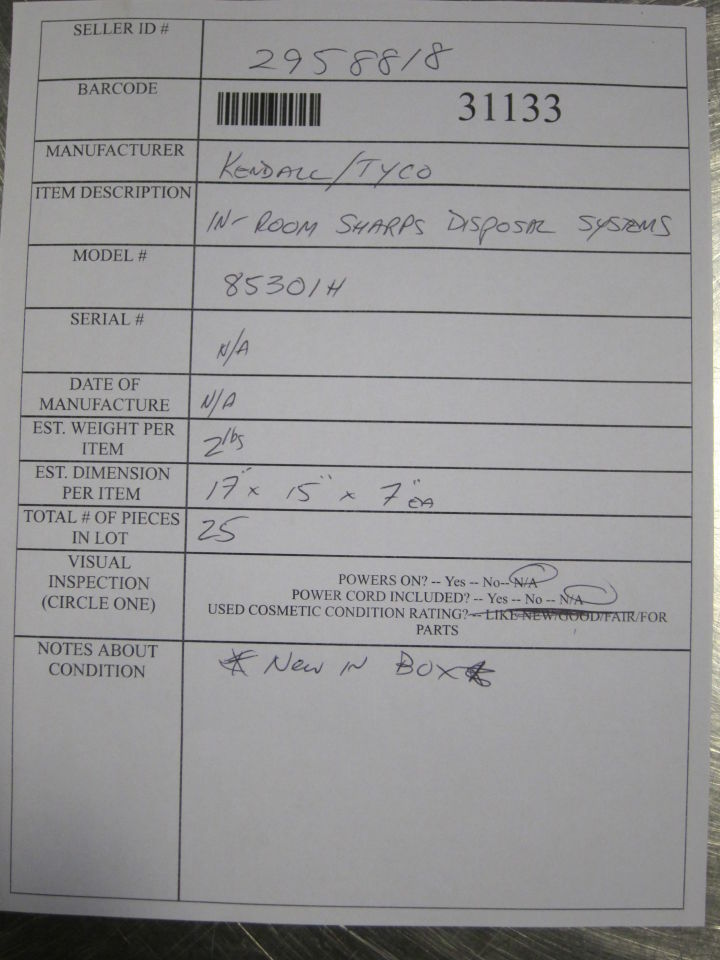 SELLER ID #
2958818
BARCODE
31133
MANUFACTURER
KENDALL/TYCO
ITEM DESCRIPTION
IN-ROOM SHARPS DISPOSAL SYSTEMS
MODEL #
85301H
SERIAL #
N/A
DATE OF
MANUFACTURE
N/A
EST. WEIGHT PER
ITEM
2lbs
EST. DIMENSION
PER ITEM
17" x 15" x 7" EA
TOTAL # OF PIECES
IN LOT
25
VISUAL
INSPECTION
(CIRCLE ONE)
POWERS ON? -- Yes -- No-- N/A
POWER CORD INCLUDED? -- Yes -- No -- N/A
USED COSMETIC CONDITION RATING? -- LIKE NEW/GOOD/FAIR/FOR
PARTS
NOTES ABOUT
CONDITION
* NEW IN BOX *